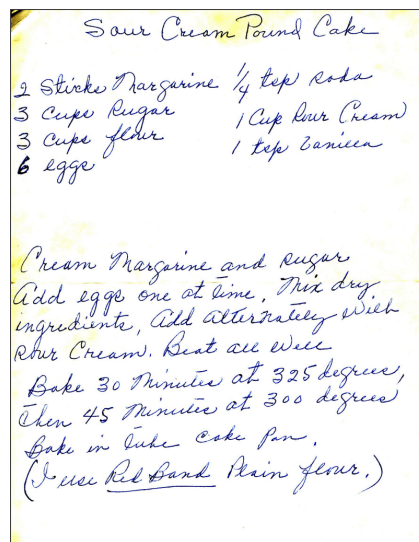 Sour Cream Pound Cake
2 Sticks Margarine 1/4 tsp soda
3 Cups sugar 1 Cup Sour Cream
3 Cups flour 1 tsp Vanilla
6 eggs
Cream Margarine and sugar
Add eggs one at time, Mix dry
ingredients, Add alternately with
sour Cream. Beat all well
Bake 30 Minutes at 325 degrees,
then 45 Minutes at 300 degrees
Bake in tube cake Pan.
(I use Red Band Plain flour.)